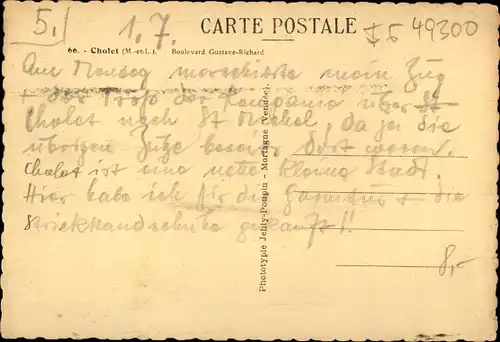 5.) 1.7. CARTE POSTALE I5 49300
66. - Cholet (M.-et-L.). Boulevard Gustave-Richard
Am Montag marschierte mein Zug
+ der Troß der Kompanie über
Cholet nach St Michel, da ja die
übrigen Züge bereits dort waren.
Cholet ist eine nette kleine Stadt.
Hier habe ich für die + die
Strickhandschuhe gekauft!!
8,-
Phototypie Jehly-Poupin - Mortagne (Vendée).